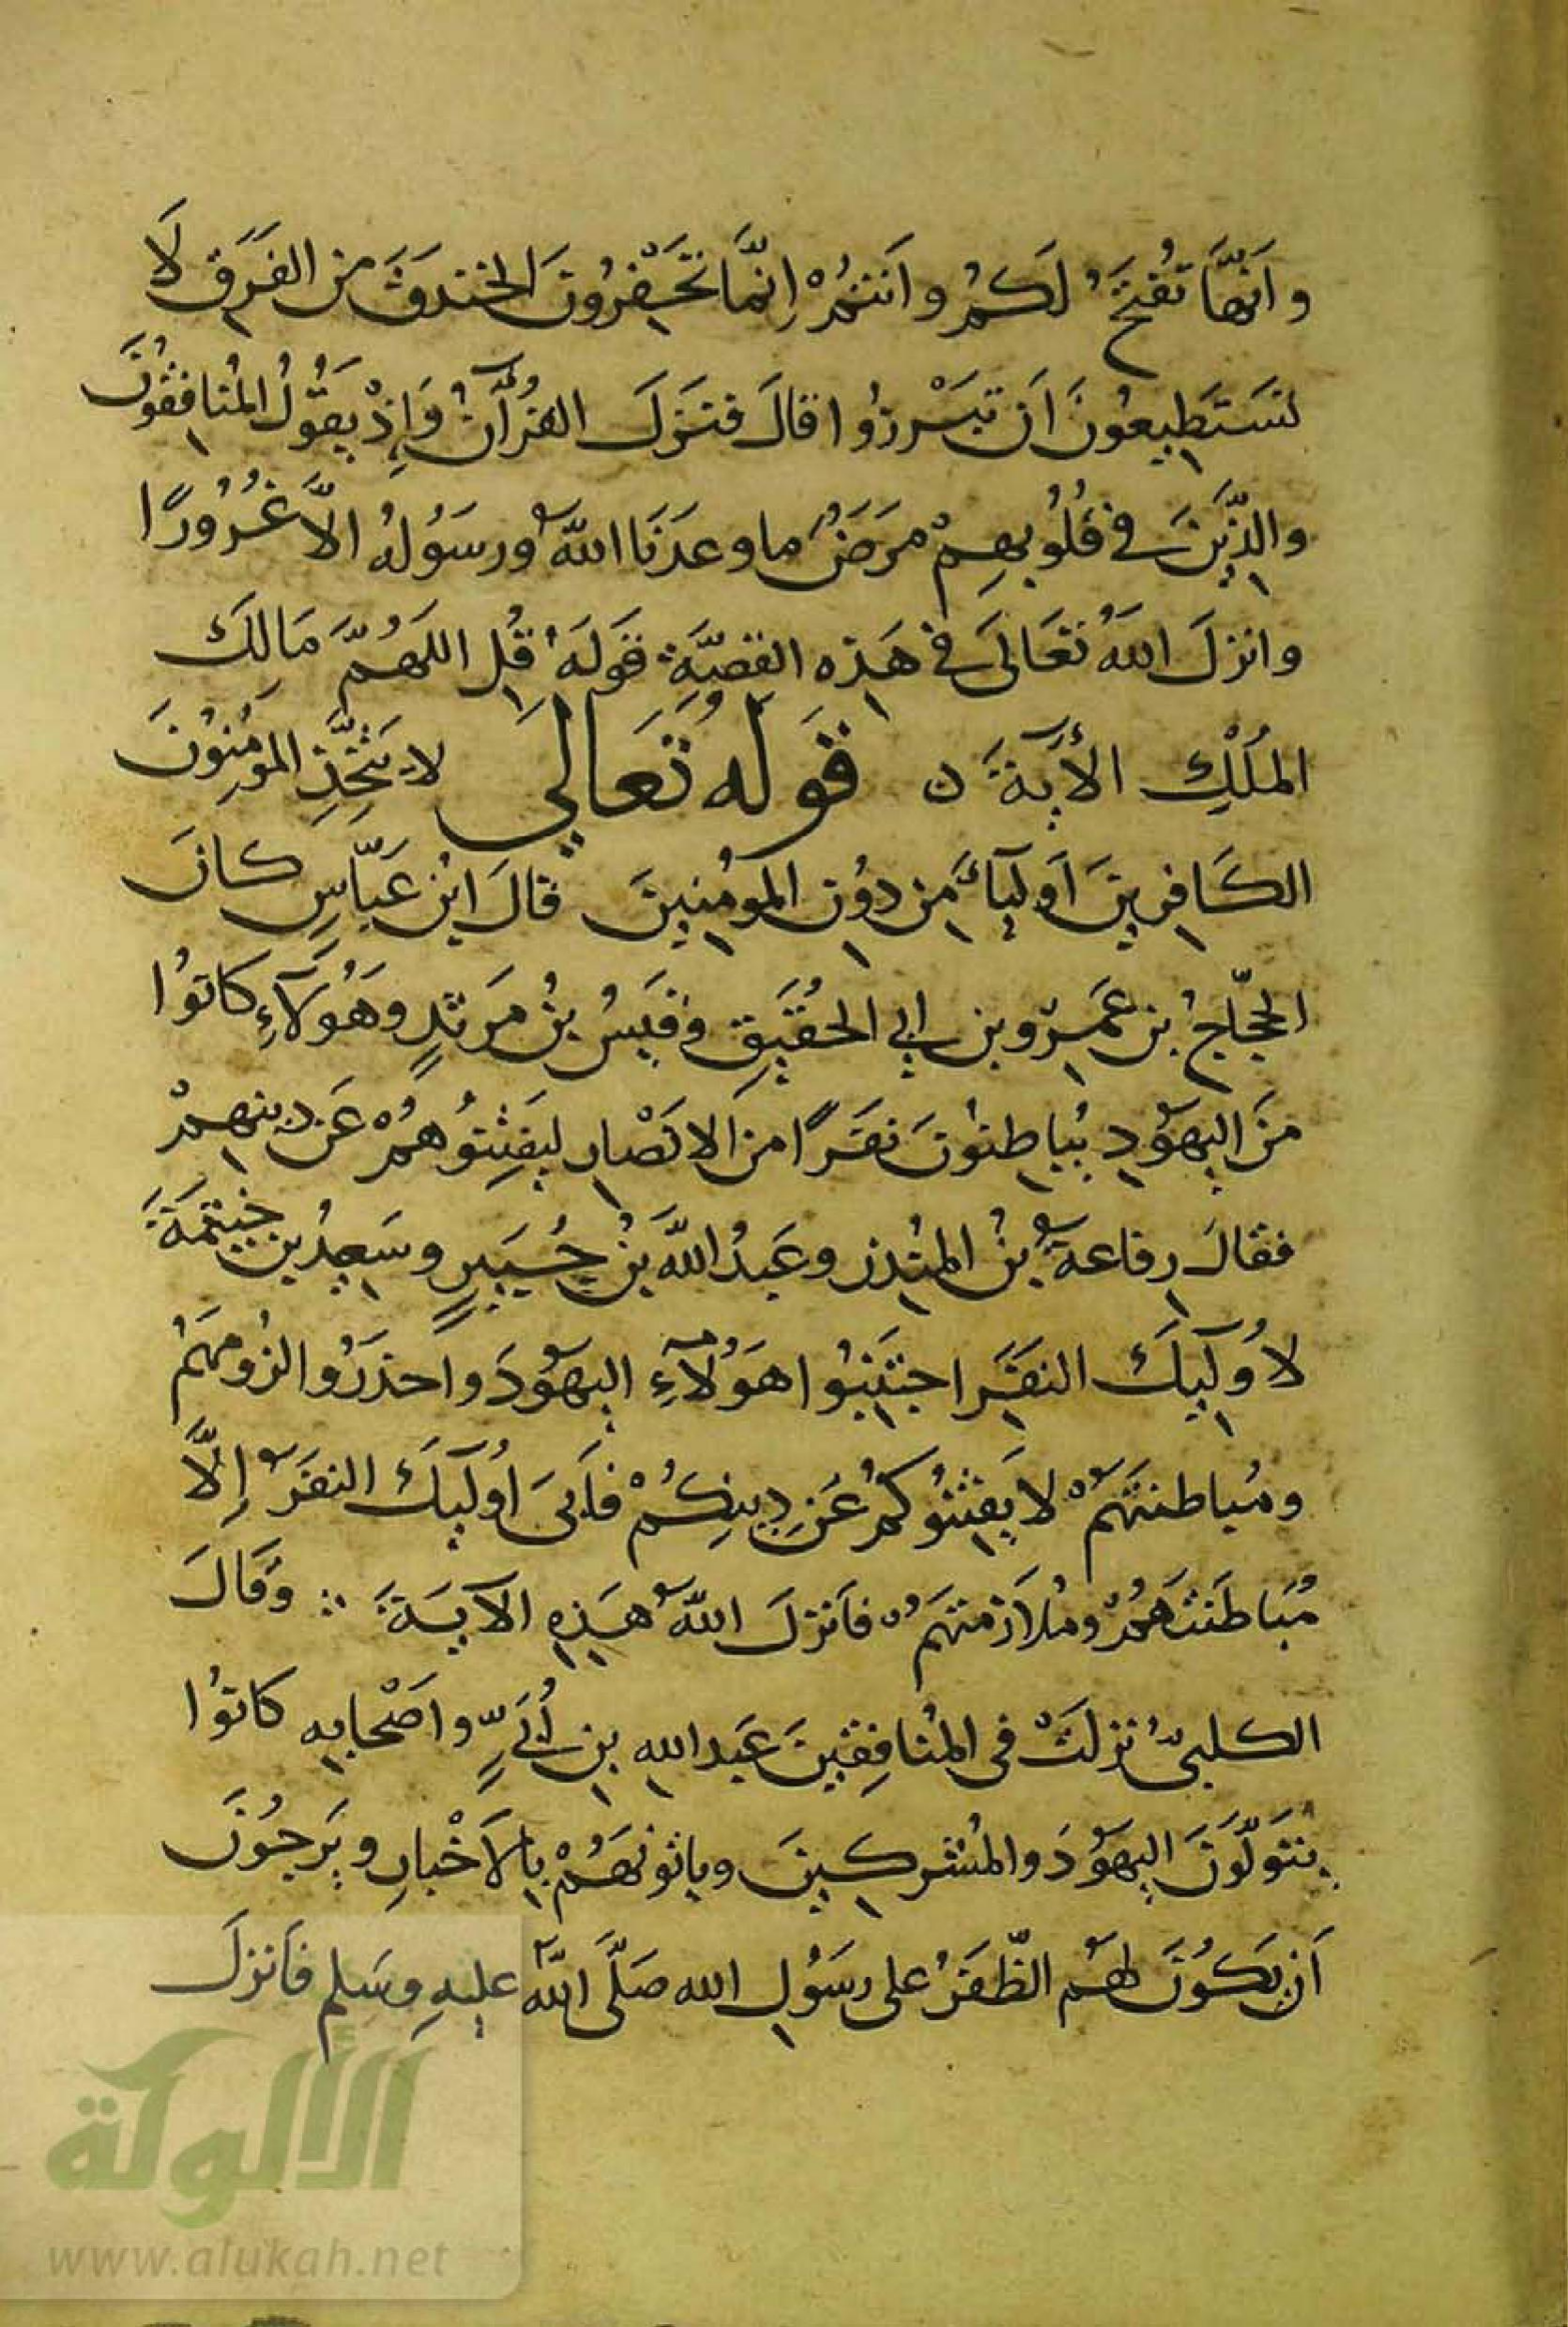 وَاَنَّهَا تُفْتَحُ لَكُمْ وَاَنْتُمْ اِنَّمَا تَحْفِرُونَ الخندقَ من الفَرَقِ لَا
تستَطِيعُونَ اَن تَبْرزُوا قالَ فنَزَلَ القُرْآنُ وَإِذْ يَقُولُ المُنافِقُونَ
والذِّينَ في قُلُوبِهِمْ مَرَضٌ ما وعدَنَا اللهُ ورسَوُلُهُ الَّا غُرُورًا
وانزلَ اللهُ تعَالَى في هَذِهِ القصَّةِ قَولَهُ قُلِ اللَهُمَّ مَالِكَ
المُلْكِ الأيَةَ ن قَولُهُ تَعَالي لا يَتَّخِذِ المؤمِنُونَ
الكَافِرِينَ اَولِيَآءَ مِن دوُنِ المُومِنِينَ قالَ ابْن عَبّاسٍ كانَ
الحجّاجُ بن عَمِرو بن ابي الحُقَيقِ وقَيسُ بْنُ مَرثدٍ وهَوُلَآءِ كانوُا
منَ اليهَوُدِ يُباطِنوُنَ نفَرًا منَ الانصْارِ ليَفتِنُوهُمْ عَن دينِهمْ
فقالَ رِفاعةُ بْنُ المُنْذِر وعَبدُ اللهِ بْنُ جُبَيرٍ وسَعِيدُ بن خَيثمَةَ
لاوُلَيكَ النفَرِ اجتَنِبُوا هَوُلآءِ اليهَوُدَ واحذرَوُا لزُومَهُمْ
ومُباطنتَهُمْ لا يَفتِنُوكُمْ عَن دِينِكُمْ فاَبىَ اوُلَيكَ النفَرُ إِلَّا
مُبَاطَنتَهُمْ ومُلاَزمتهَمُ فاَنزلَ اللهُ هَذِهِ الآيَةَ وَقَالَ
الكلبيُّ نزلَتْ في المُنافِقِينَ عَبد اللهِ بنِ أُبَيٍّ واصْحابِهِ كانوُا
يتَوَلَّوَنَ اليهَوُدَ والمُشركِينَ وياتونَهُمْ بِالاَخْبارِ ويَرجُونَ
اَن يَكوُنَ لهَمُ الظّفَرُ على رسَوُلِ الله صَلَّى اللهُ عليهِ وسَلم فاَنزلَ
الألوكة
www.alukah.net